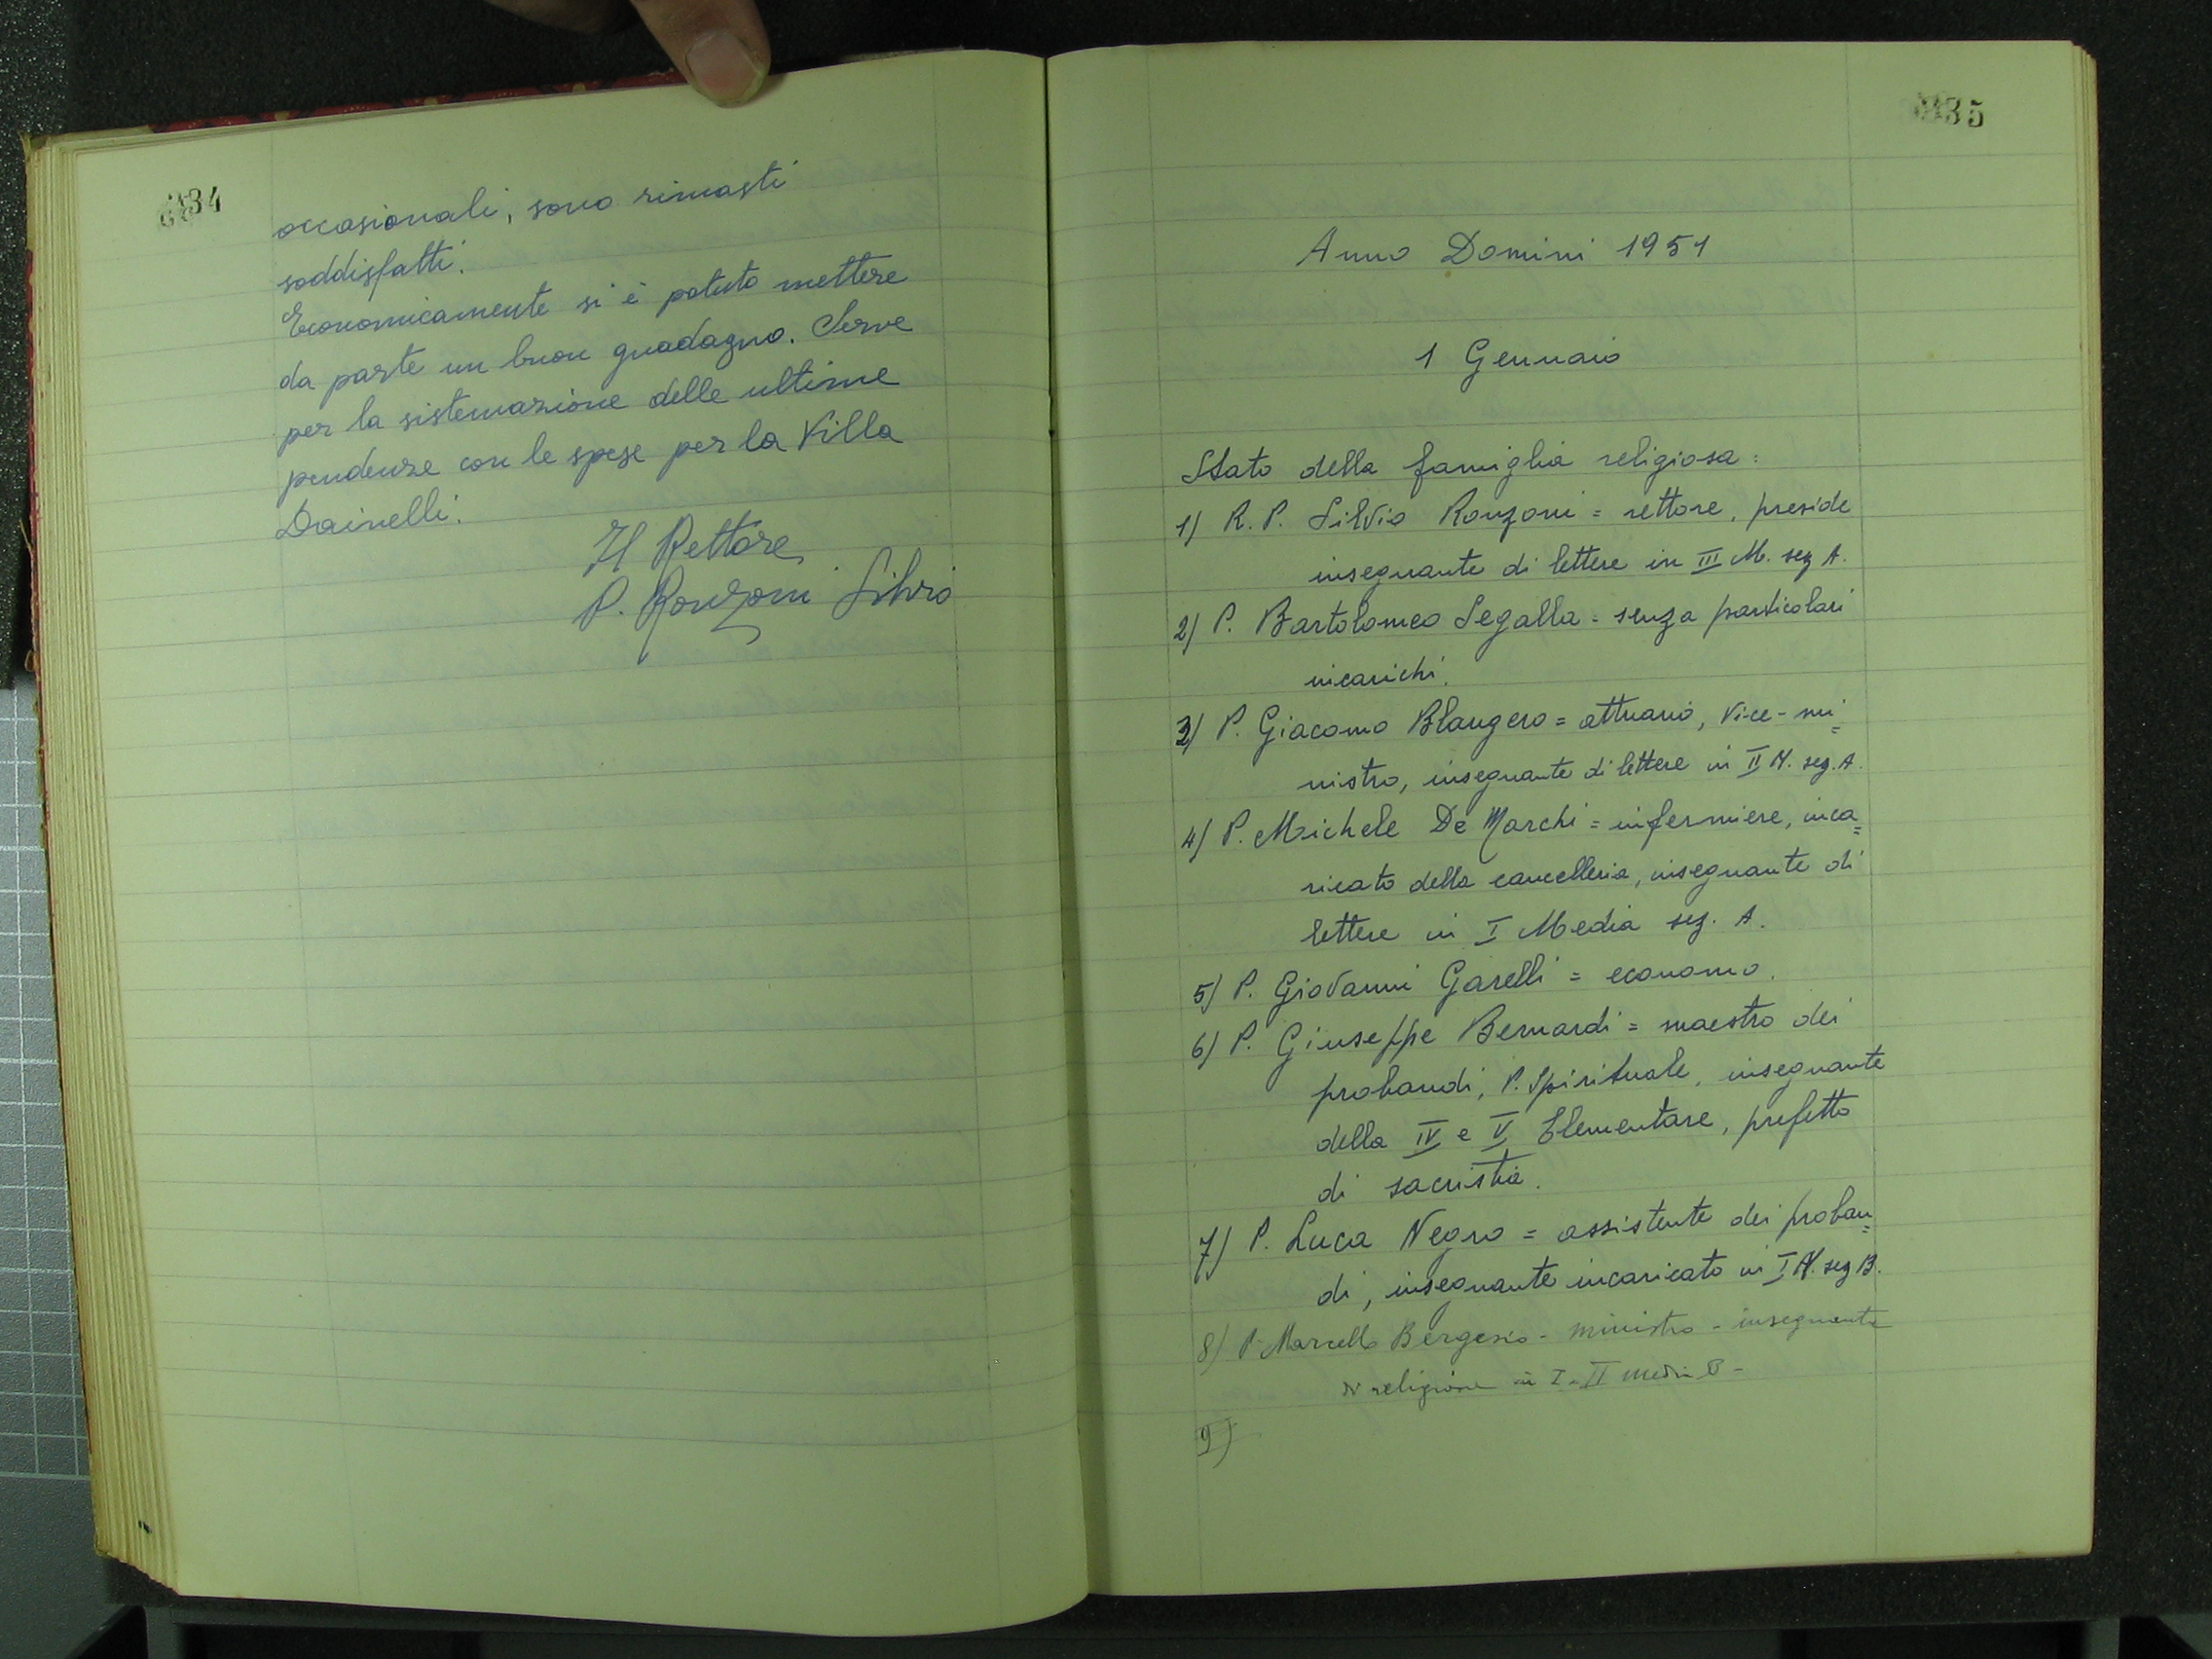 34
occasionali, sono rimasti
soddisfatti.
Economicamente si è potuto mettere
da parte un buon guadagno. Serve
per la sistemazione delle ultime
pendenze con le spese per la Villa
Dainelli.
Il Rettore
P. Ronzoni Silvio
35
Anno Domini 1951
1 Gennaio
Stato della famiglia religiosa:
1) R. P. Silvio Ronzoni = rettore, preside
insegnante di lettere in III M. sez A.
2) P. Bartolomeo Segalla = senza particolari
incarichi.
3) P. Giacomo Blangero = attuario, Vice-mi=
nistro, insegnante di lettere in II M. sez. A.
4) P. Michele De Marchi = infermiere, inca=
ricato della cancelleria, insegnante di
lettere in I Media sez. A.
5) P. Giovanni Garelli = economo.
6) P. Giuseppe Bernardi = maestro dei
probandi, P. Spirituale, insegnante
della IV e V Elementare, prefetto
di sacristia.
7) P. Luca Negro = assistente dei proban=
di, insegnante incaricato in I M. sez B.
8) P. Marcello Bergesio - ministro - insegnante
di religione in I - II media B -
9)